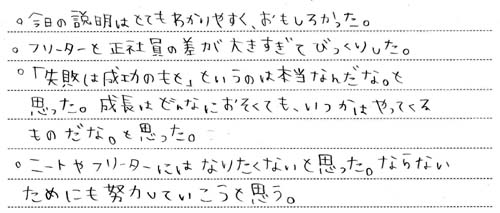 。今日の説明はとてもわかりやすく、おもしろかった。
。フリーターと正社員の差が大きすぎてびっくりした。
。「失敗は成功のもと」というのは本当なんだな。と
思った。成長はどんなにおそくても、いつかはやってくる
ものだな。と思った。
。ニートやフリーターにはなりたくないと思った。ならない
ためにも努力していこうと思う。